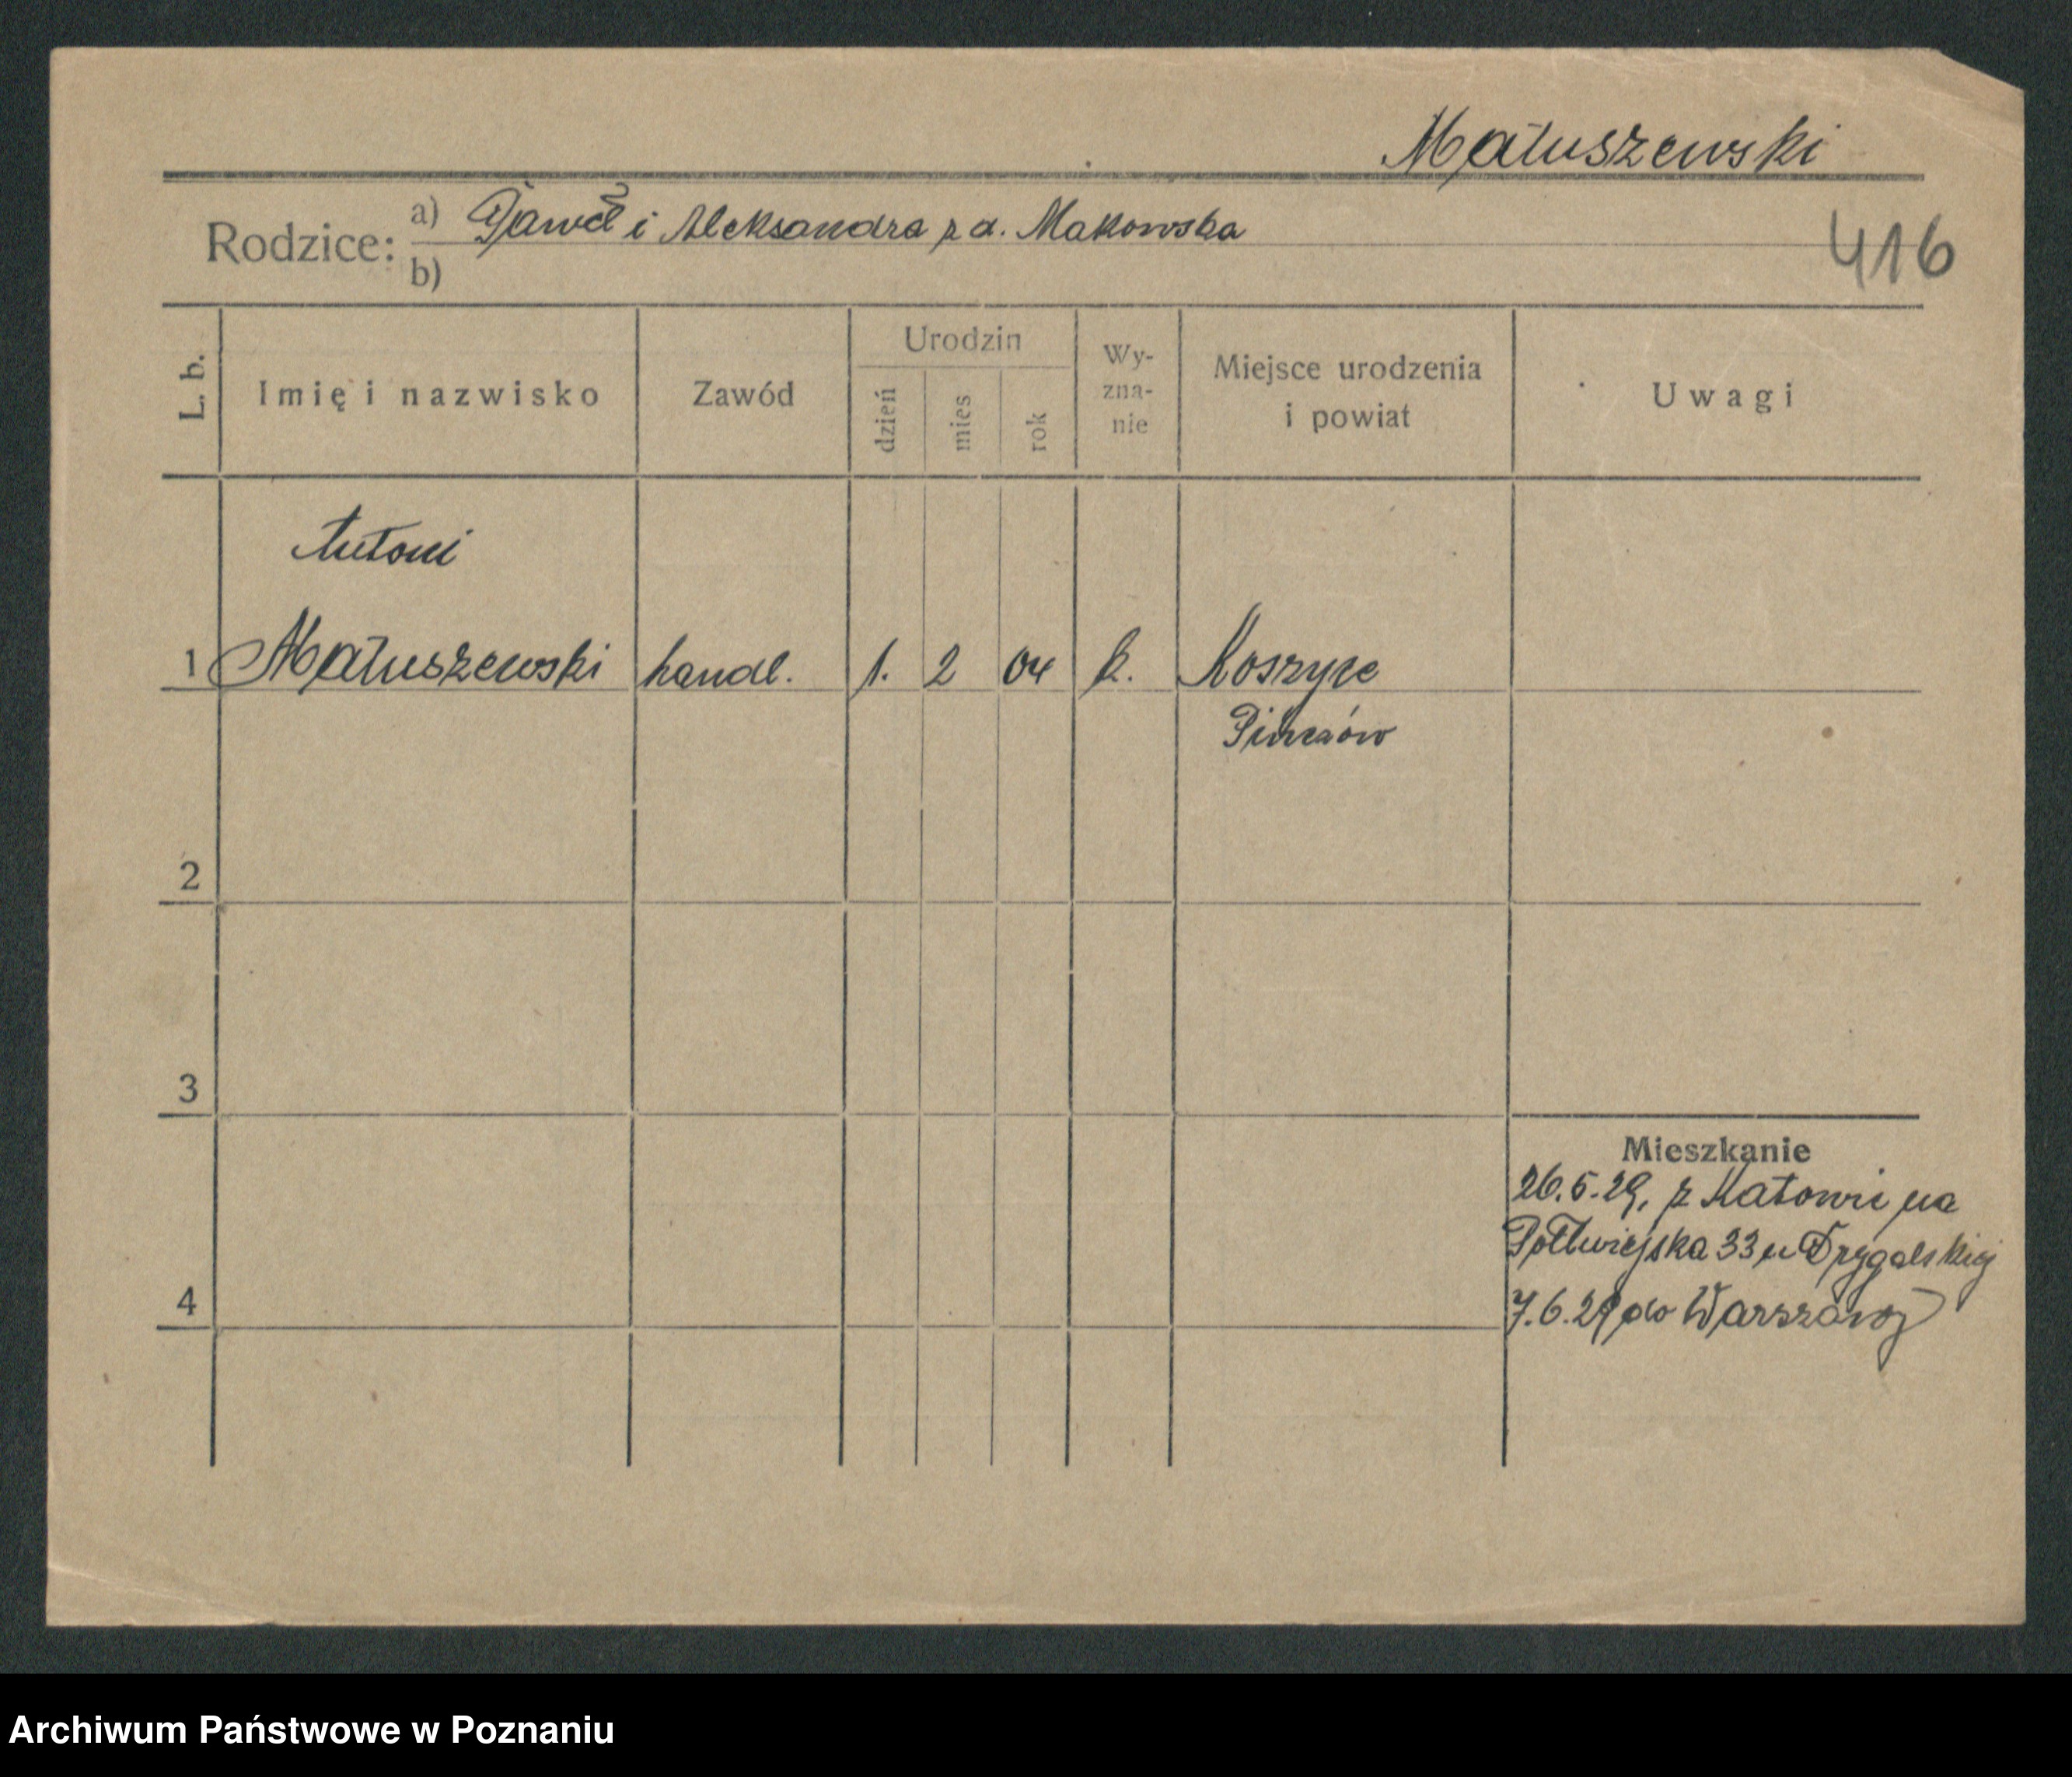 Matuszewski
Rodzice: a) Paweł i Aleksandra z d. Makowska
b)
416
L. b. Imię i nazwisko Zawód Urodzin dzień mies rok Wy-zna-nie Miejsce urodzenia i powiat Uwagi
Antoni
1 Matuszewski handl. 1. 2 04 k. Koszyce
Pinczów
2
3
Mieszkanie
26.5.29, z Katowic na
Półwiejska 33 u Drygalskiej
4
7.6.29 do Warszawy
Archiwum Państwowe w Poznaniu